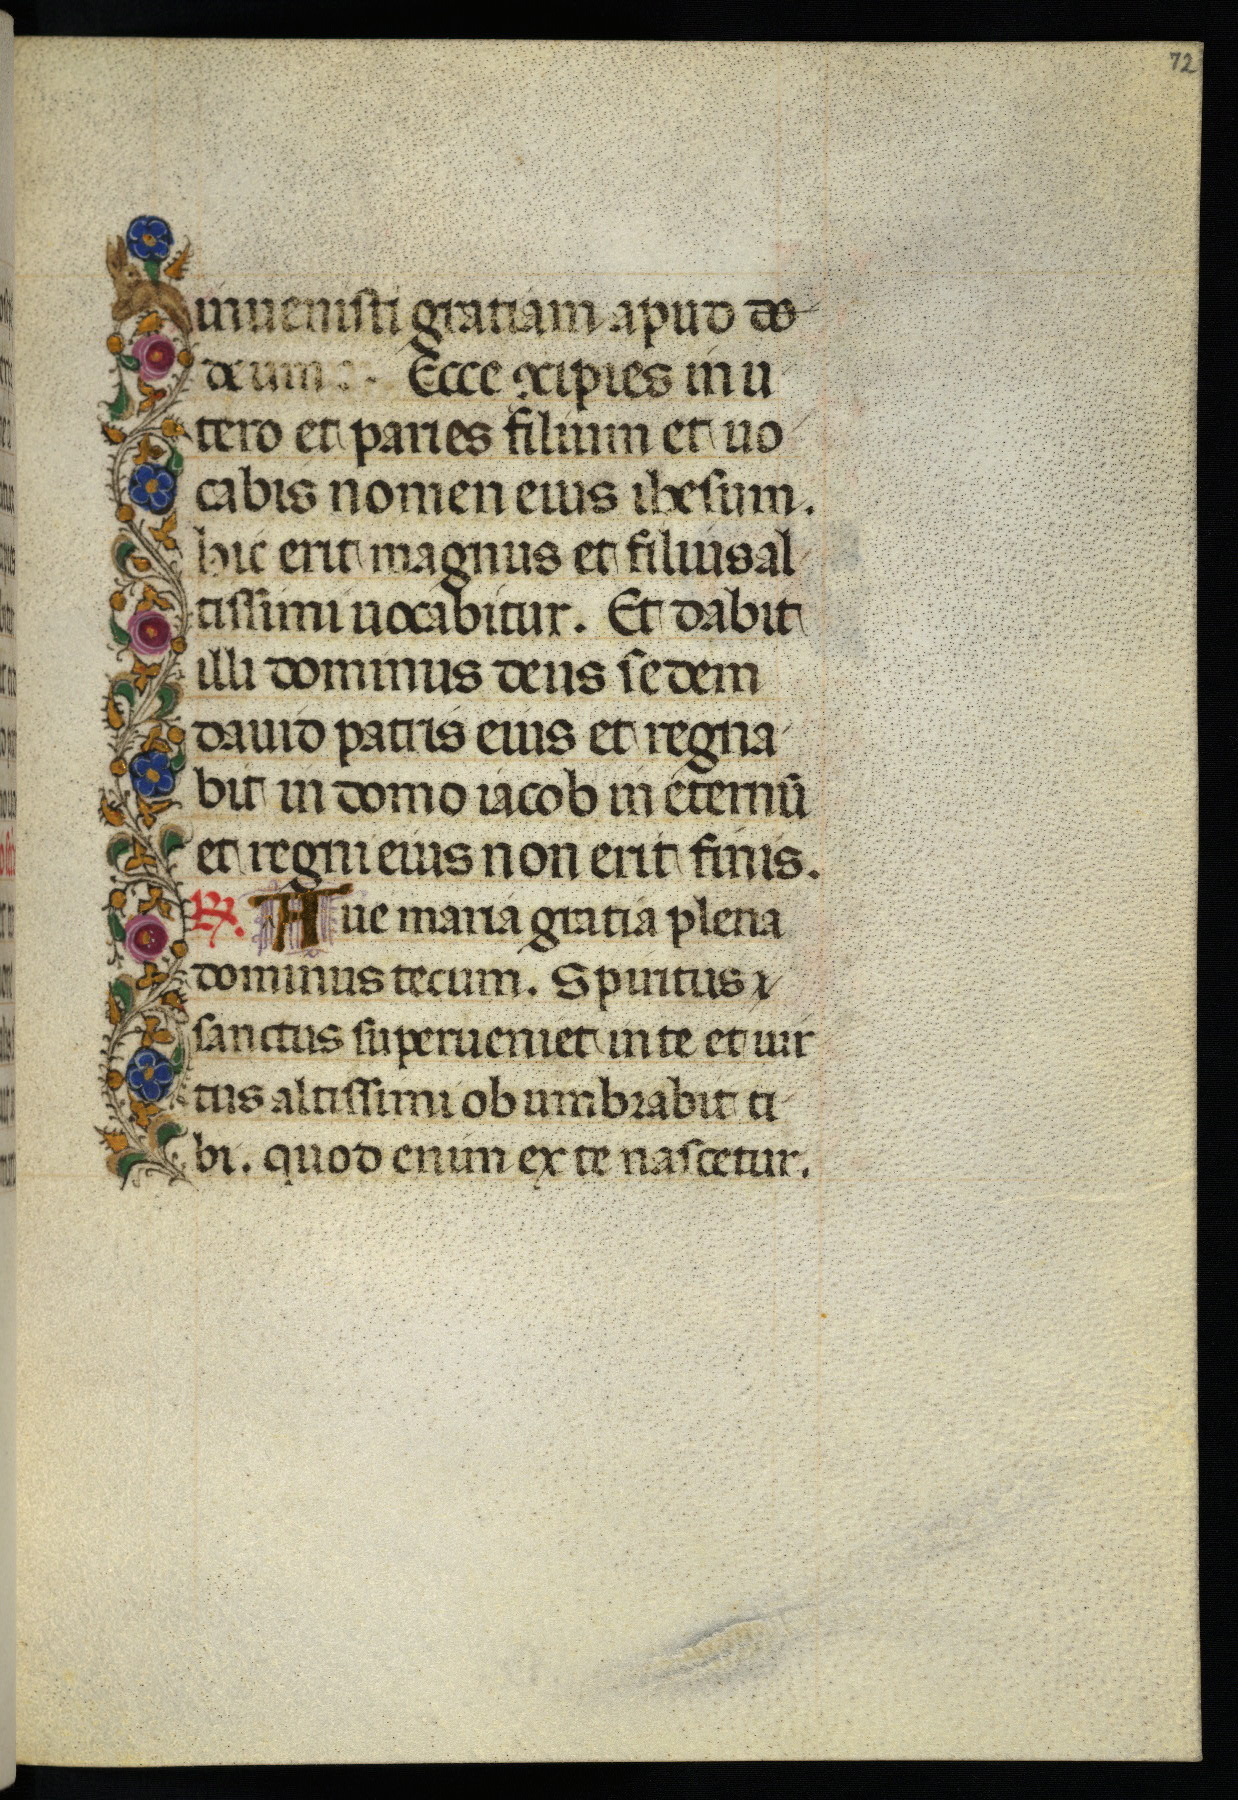 72
inuenisti gratiam apud do
deum : . Ecce ꝯcipies in u
tero et paries filium et uo
cabis nomen eius ihesum.
hic erit magnus et filius al
tissimi uocabitur. Et dabit
illi dominus deus sedem
dauid patris eius et regna
bit in domo iacob in eternū
et regni eius non erit finis.
℟. Aue maria gratia plena
dominus tecum. Spiritus
sanctus superueniet in te et uir
tus altissimi obumbrabit ti
bi. quod enim ex te nascetur.